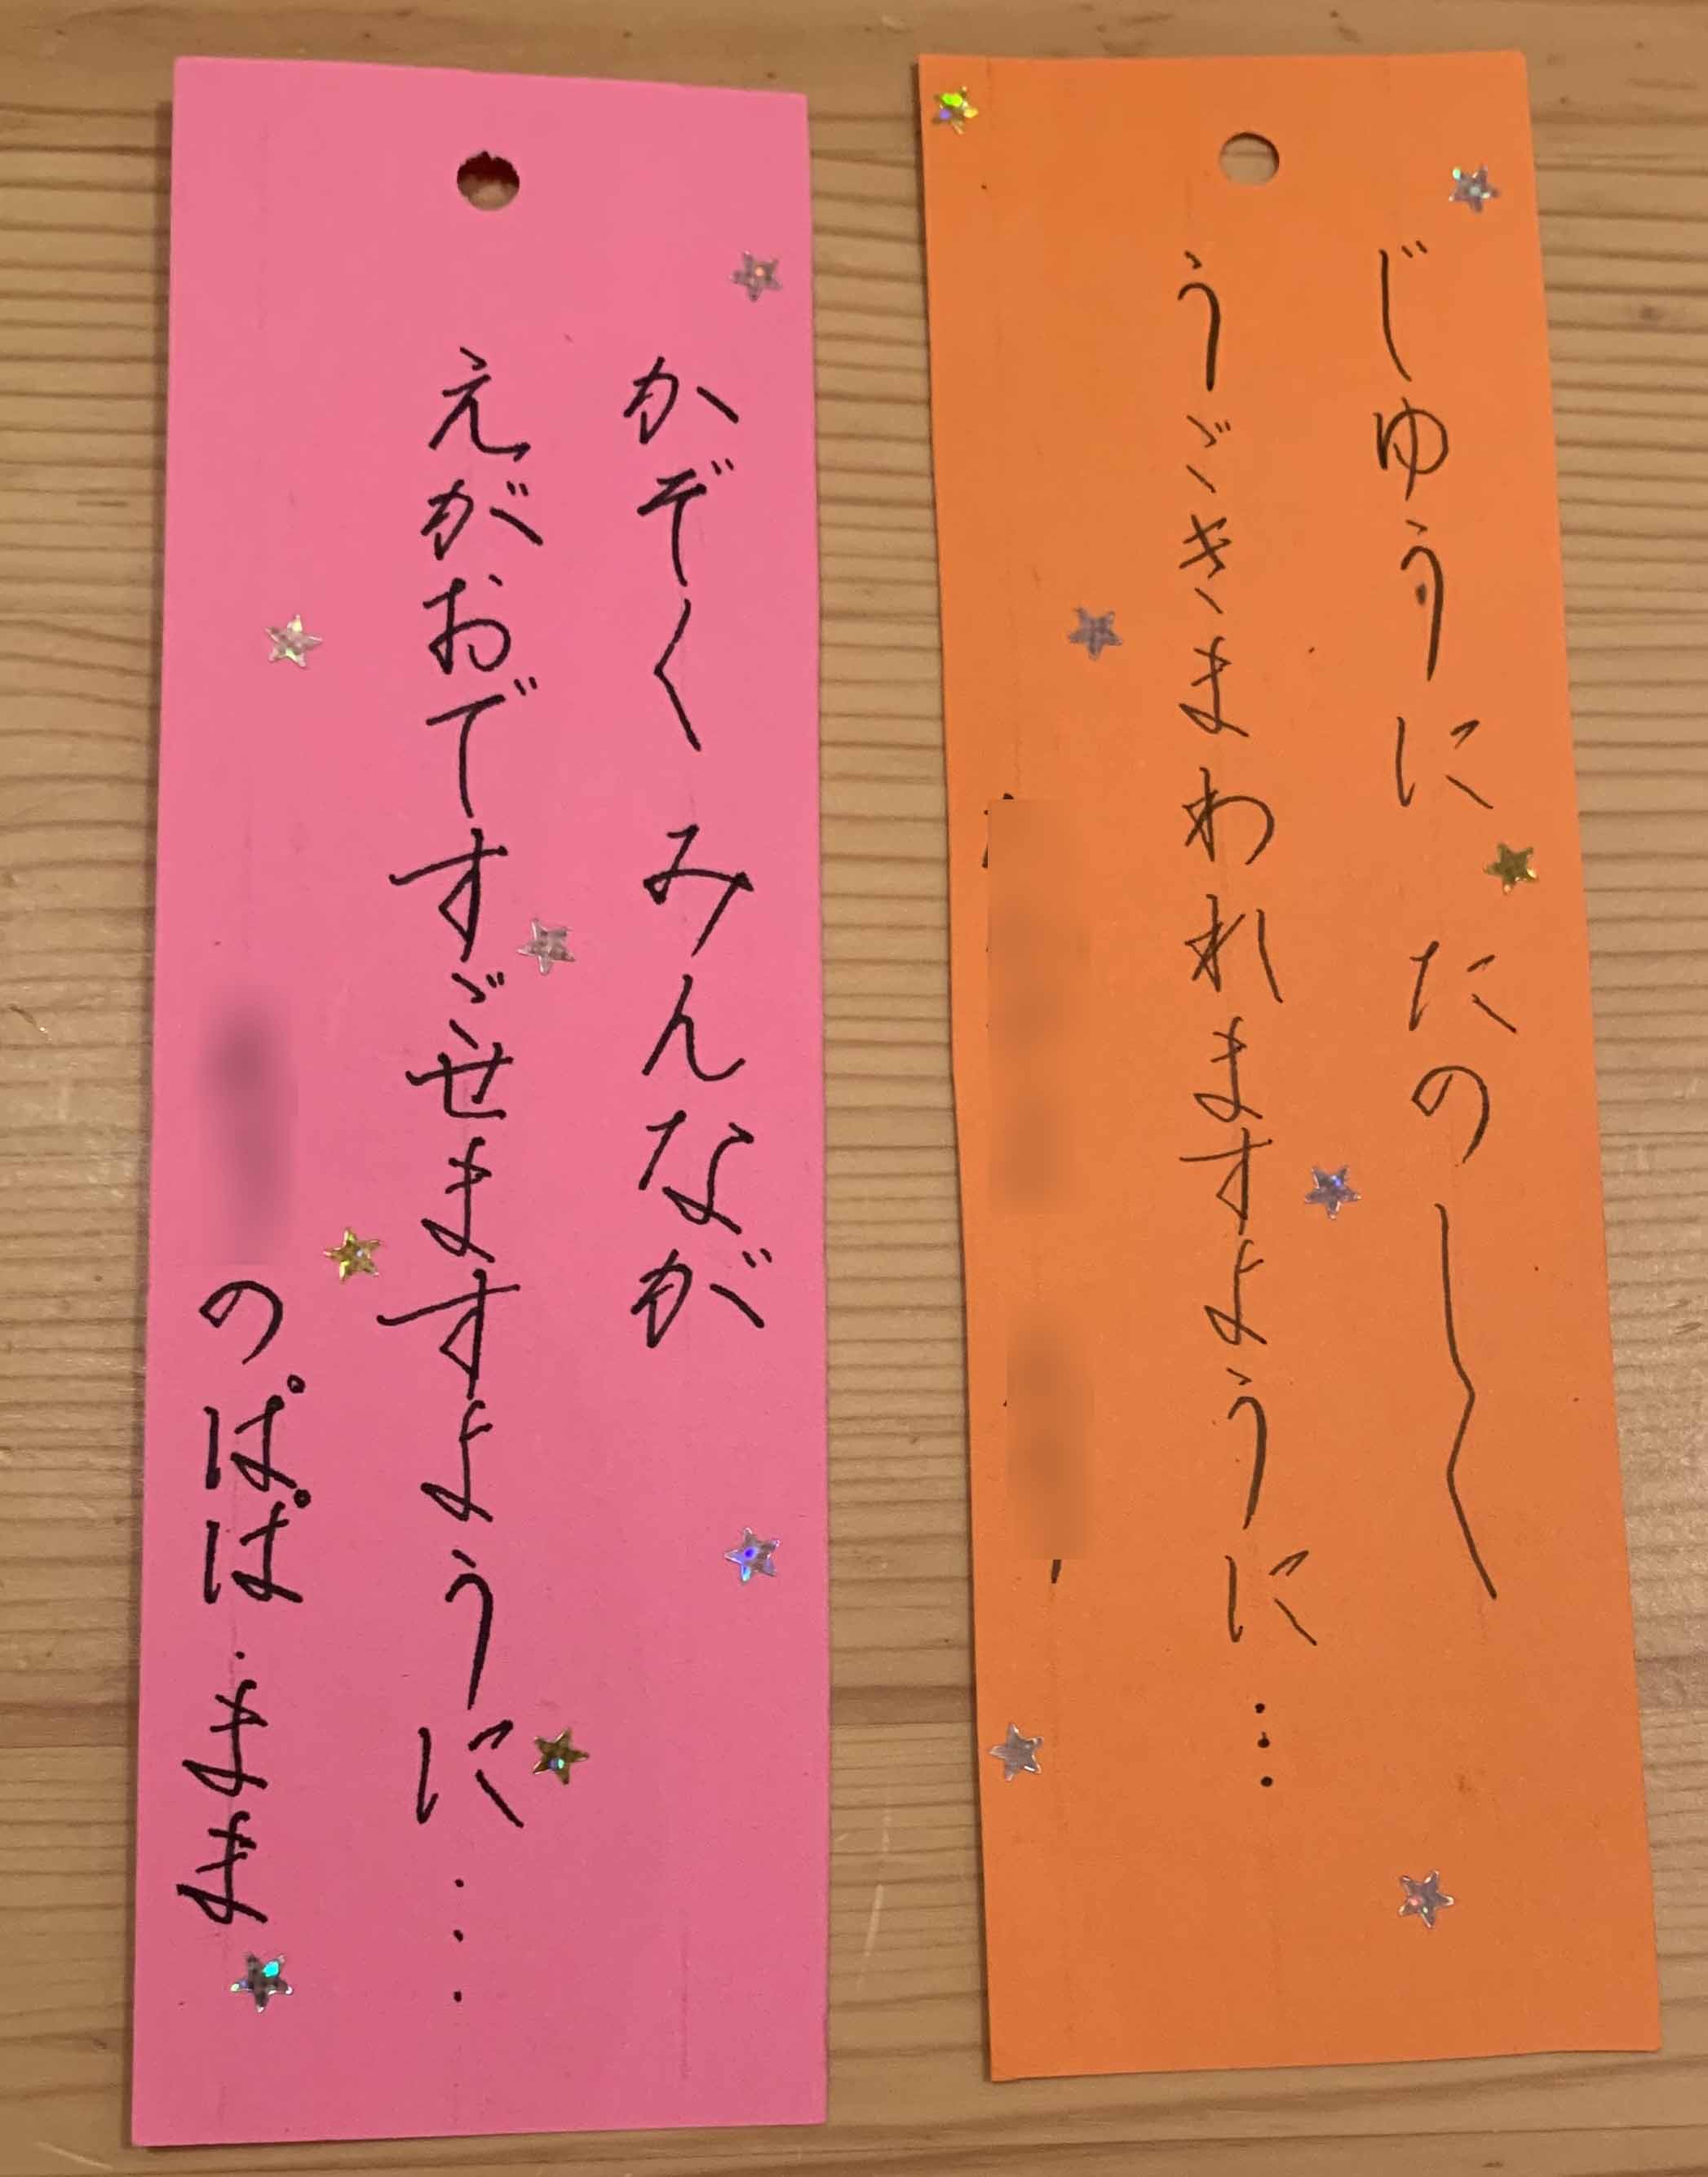 じゆうに たのし〜
うごきまわれますように…
かぞく みんなが
えがおですごせますように…
のぱぱ・まま